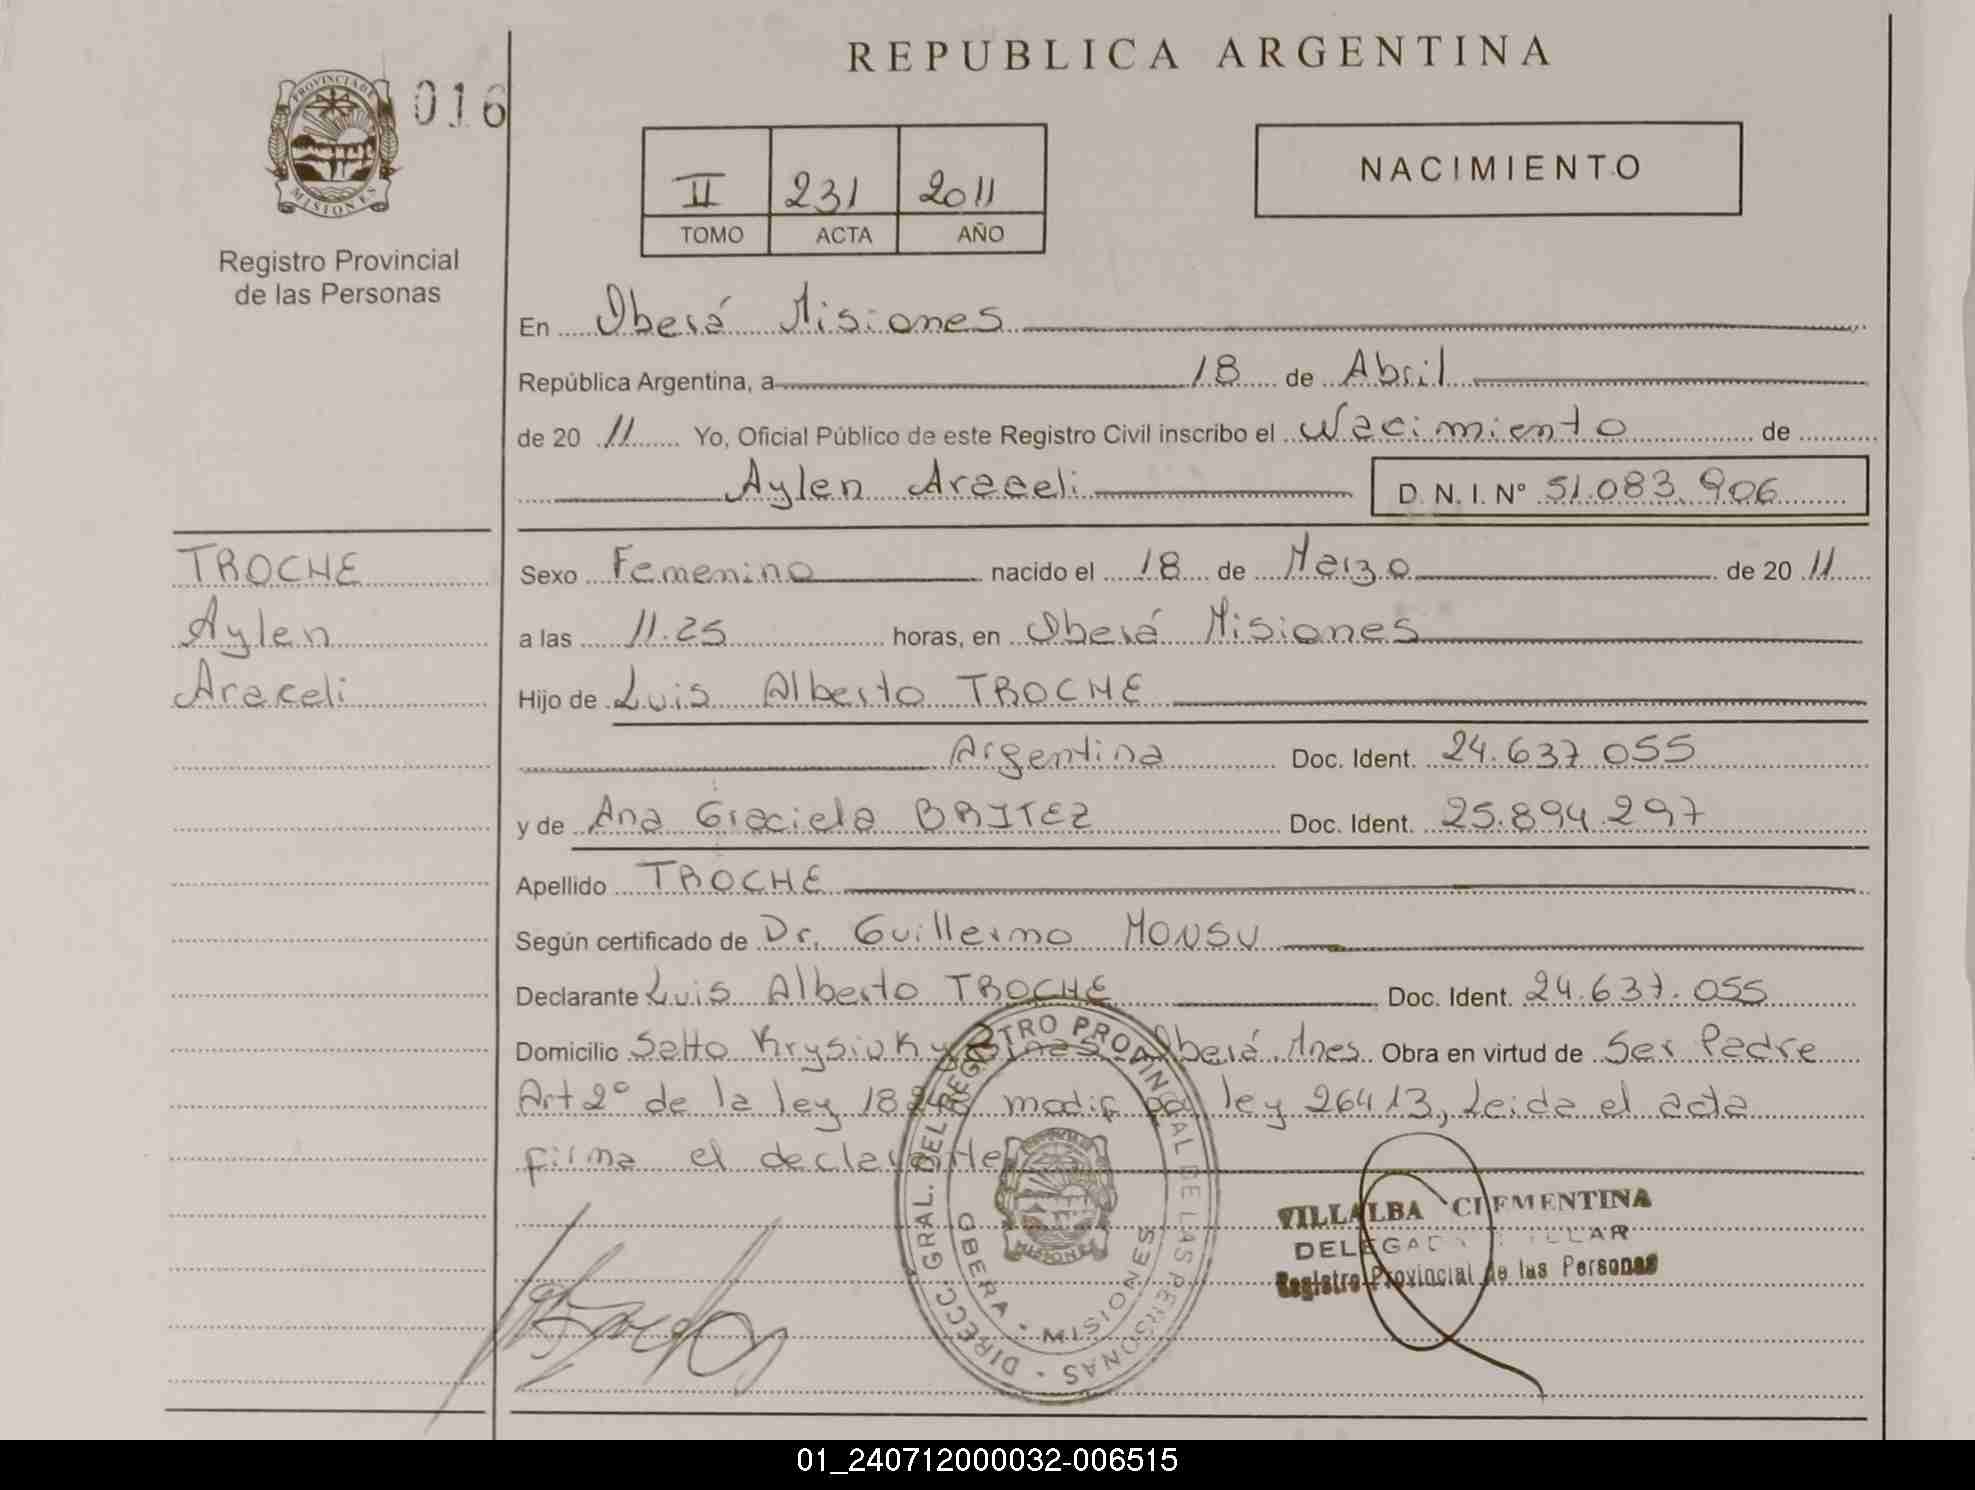 REPUBLICA ARGENTINA
PROVINCIA DE
MISIONES
016
Registro Provincial
de las Personas
II 231 2011
TOMO ACTA AÑO
NACIMIENTO
En Oberá Misiones
República Argentina, a 18 de Abril
de 20 11 Yo, Oficial Público de este Registro Civil inscribo el Nacimiento de
Aylen Araceli D.N.I. Nº 51.083.906
TROCHE
Aylen
Araceli
Sexo Femenino nacido el 18 de Marzo de 20 11
a las 11.25 horas, en Oberá Misiones
Hijo de Luis Alberto TROCHE
Argentina Doc. Ident. 24.637.055
y de Ana Graciela BRITEZ Doc. Ident. 25.894.297
Apellido TROCHE
Según certificado de Dr. Guillermo MONSU
Declarante Luis Alberto TROCHE Doc. Ident. 24.637.055
Domicilio Salto Krysiuky Oberá, Mnes Obra en virtud de Ser Padre
Art 2º de la ley modif por ley 26413, Leida el acta
firma el declarante
DIRECC. GRAL. DEL REGISTRO PROVINCIAL DE LAS PERSONAS
OBERA - MISIONES
MISIONES
VILLALBA CLEMENTINA
Registro Provincial de las Personas
01_240712000032-006515